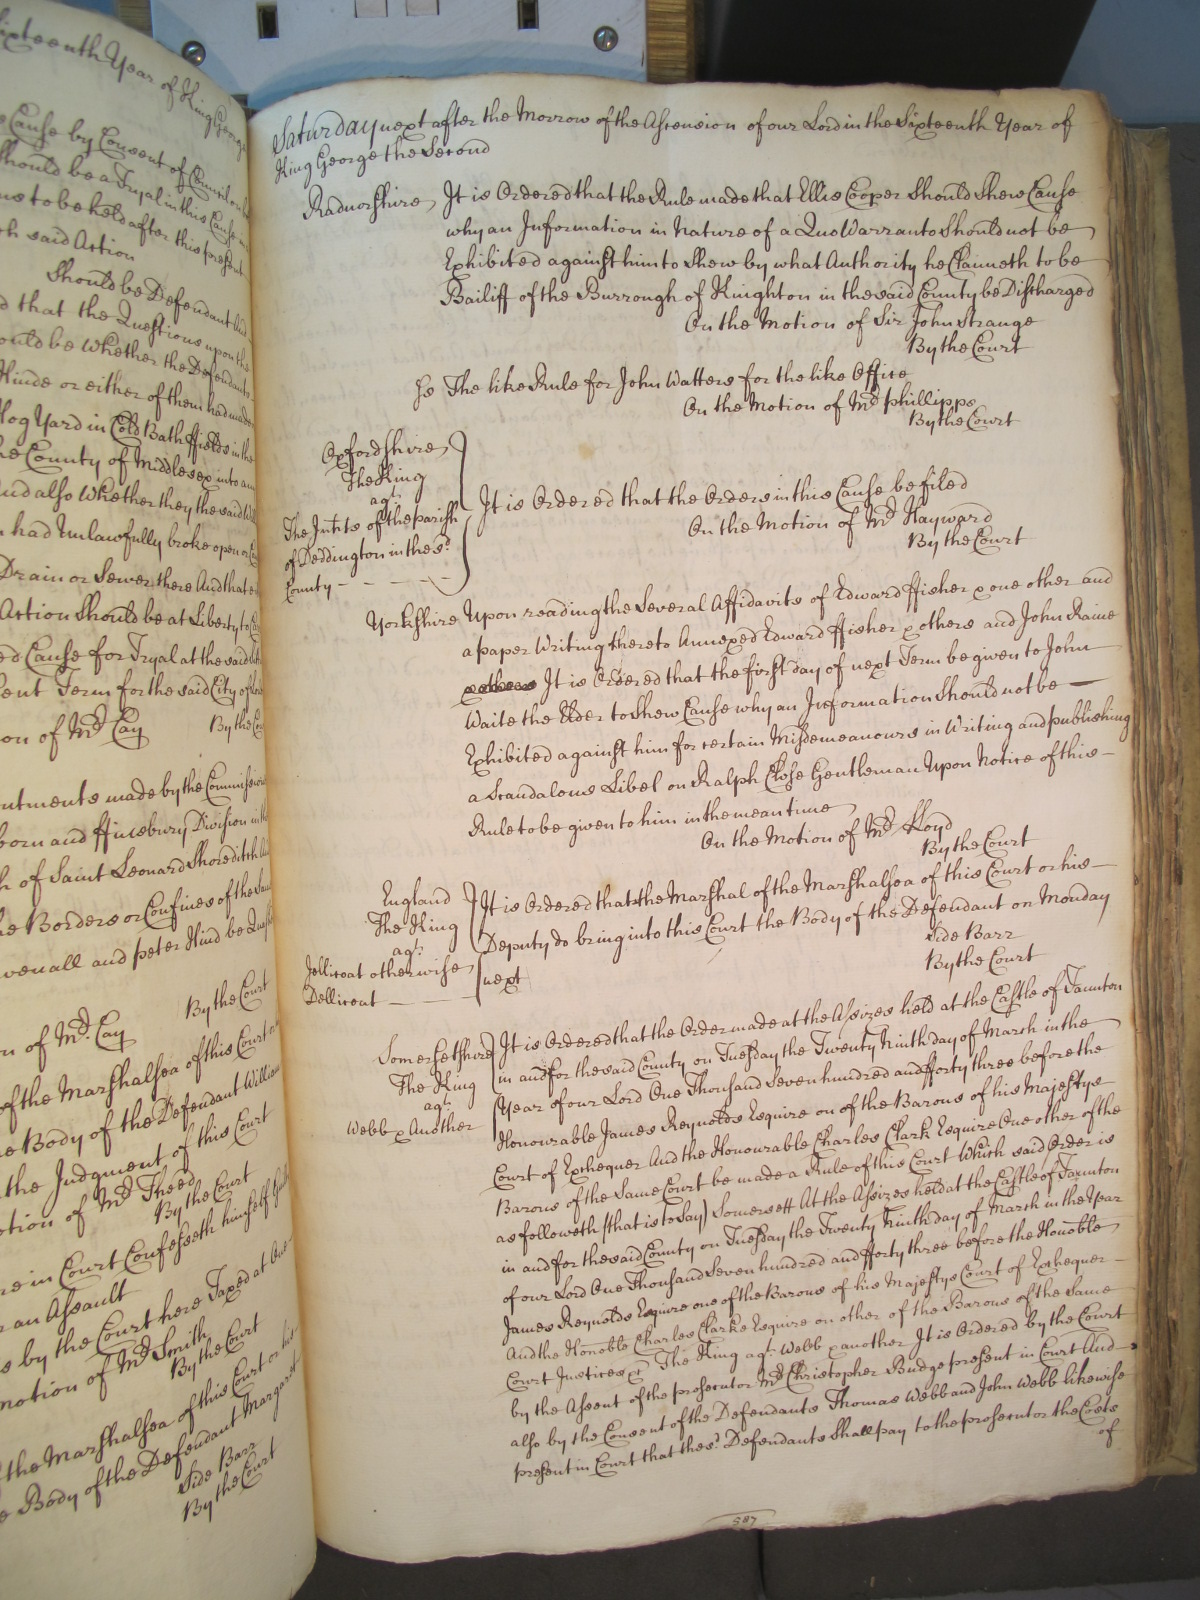 Sixteenth Year of King George
Cause by Consent of Councel on
Should be a Tryal in this Cause
to be held after this present
said Action
Should be Defendant And
that the Questions upon the
should be Whether the Defendants
Hinde or either of them had made
Hog Yard in Cold Bath ffields in the
County of Middlesex into an
And also Whether they the said
had Unlawfully broke open or
Drain or Sewer there And that
Action Should be at Liberty to
Cause for Tryal at the said
Term for the said City of
on of Mr. Cay By the Court
made by the Commissioners
born and ffinsbury Division in the
of Saint Leonard Shoreditch And
Borders or Confines of the Same
and Peter Hind be
By the Court
on of Mr. Cay
of the Marshalsea of this Court
Body of the Defendant William
the Judgment of this Court
motion of Mr. Theed
By the Court
in Court Confesseth himself
an Assault
by the Court here Taxed at One
motion of Mr. Smith
By the Court
the Marshalsea of this Court or his
Body of the Defendant Margaret
Side Barr
By the Court
Saturday next after the Morrow of the Ascension of our Lord in the Sixteenth Year of
King George the Second
Radnorshire It is Ordered that the Rule made that Ellis Cooper Should Shew Cause
why an Information in Nature of a Quo Warranto Should not be
Exhibited against him to Shew by what Authority he Claimeth to be
Bailiff of the Burrough of Knighton in the said County be Discharged
On the Motion of Sir John Strange
By the Court
Js The like Rule for John Watters for the like Office
On the Motion of Mr. Phillipps
By the Court
Oxfordshire
The King
agt.
The Inhits of the parish
of Deddington in the sd.
County
It is Ordered that the Orders in this Cause be filed
On the Motion of Mr. Hayward
By the Court
Yorkshire Upon reading the Several Affidavits of Edward ffisher & one other and
a paper Writing thereto Annexed Edward ffisher & others and John Raine
It is Ordered that the first day of next Term be given to John
Waite the Elder to Shew Cause why an Information Should not be
Exhibited against him for certain Misdemeanours in Writing and publishing
a Scandalous Libel on Ralph Close Gentleman Upon Notice of this
Rule to be given to him in the mean time
On the Motion of Mr. Lloyd
By the Court
England
The King
agt.
Jellicoat otherwise
Dellicout
It is Ordered that the Marshal of the Marshalsea of this Court or his
Deputy do bring into this Court the Body of the Defendant on Monday
next
Side Barr
By the Court
Somersetshire
The King
agt.
Webb & Another
It is Ordered that the Order made at the Assizes held at the Castle of Taunton
in and for the said County on Tuesday the Twenty Ninth day of March in the
Year of our Lord One Thousand Seven hundred and fforty three before the
Honourable James Reynolds Esquire on of the Barons of his Majestys
Court of Exchequer And the Honourable Charles Clark Esquire One other of the
Barons of the Same Court be made a Rule of this Court Which said Order is
as followeth (that is to Say) Somersett At the Assizes held at the Castle of Taunton
in and for the said County on Tuesday the Twenty Ninth day of March in the Year
of our Lord One Thousand Seven hundred and fforty three before the Honoble
James Reynolds Esquire one of the Barons of his Majestys Court of Exchequer
And the Honoble Charles Clarke Esquire on other of the Barons of the Same
Court Justices &c The King agt. Webb & another It is Ordered by the Court
by the Assent of the prosecutor Mr. Christopher Budge present in Court And
also by the Consent of the Defendants Thomas Webb and John Webb likewise
present in Court that the sd. Defendants Shall pay to the prosecutor the Costs
of
587